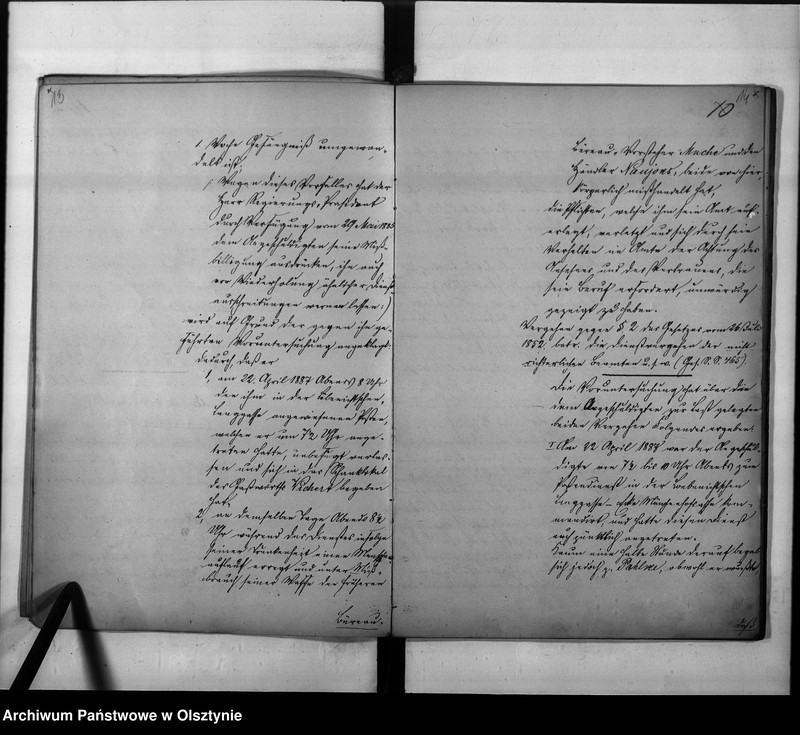 13
1 Woche Gefängniß umgewan-
delt ist,
(: Wegen dieses Vorfalles hat der
Herr Regierungs-Präsident
durch Verfügung vom 29. Mai 188
dem Angeschuldigten seine Miß-
billigung ausdrücken, ihn auch
vor Wiederholung ähnlicher Dienst-
ausschreitungen warnen lassen :)
wird auf Grund der gegen ihn ge-
führten Voruntersuchung angeklagt:
dadurch, daß er
1, am 22. April 1887 Abends 8 Uhr
den ihm in der Löbenichtschen
Langgasse angewiesenen Posten,
welchen er um 7½ Uhr ange-
treten hatte, unbefugt verlas-
sen und sich in das Schanklokal
des Gastwirths Eichert begeben
hat,
2, an demselben Tage Abends 8½
Uhr während des Dienstes infolge
seiner Trunkenheit einen Menschen-
auflauf erregt und unter Miß-
brauch seiner Waffe den früheren
Büreau-
14
70
Büreau-Vorsteher Mache und den
Händler Naujoks, beide von hier,
körperlich mißhandelt hat,
die Pflichten, welche ihm sein Amt auf-
erlegt, verletzt und sich durch sein
Verhalten im Amte der Achtung des
Ansehens und des Vertrauens, die
sein Beruf erfordert, unwürdig
gezeigt zu haben.
Vergehen gegen § 2 des Gesetzes vom 26. Juli
1852, betr. die Dienstvergehen der nicht
richterlichen Beamten u.s.w. (Ges. S. S. 465).
Die Voruntersuchung hat über die
dem Angeschuldigten zur Last gelegten
beiden Vergehen Folgendes ergeben:
I. Am 22 April 1887 war der Angeschul-
digte von 7½ bis 10 Uhr Abends zum
Postendienst in der Löbenichtschen
Langgasse - Ecke Münchenhofgasse kom-
mandirt, und hatte diesen Dienst
auch pünktlich angetreten.
Kaum eine halbe Stunde darauf begab
sich jedoch p. Pahlke, obwohl er wußte,
daß
Archiwum Państwowe w Olsztynie